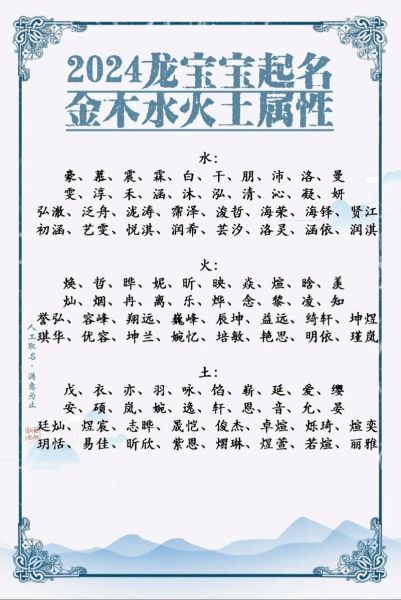 2024龙宝宝起名
金木水火土属性
水:
豪、慕、震、霖、白、干、朋、沛、洛、曼
雯、淳、禾、涵、沐、泓、清、沁、凝、妍
弘澈、泛舟、泷涛、霈泽、浚哲、海荣、海铎、贤江
初涵、艺雯、悦淇、润希、芸汐、洛灵、涵依、润淇
火:
焕、哲、晔、妮、昕、映、焱、煊、晗、美
灿、烟、冉、离、乐、烨、念、黎、凌、知
誉弘、容峰、翔远、巍峰、辰坤、益远、绮轩、坤煜
琪华、优容、坤兰、婉忆、培敏、艳思、明依、瑾岚
土:
戊、衣、亦、羽、咏、馅、崭、延、爱、缨
安、硕、岚、婉、逸、轩、恩、音、允、晏
廷灿、煜宸、志晔、晟恺、俊杰、卓煊、烁琦、煊奕
玥恬、易佳、昕欣、紫恩、熠琳、煜萱、若煊、丽雅
人工取名·满意为止